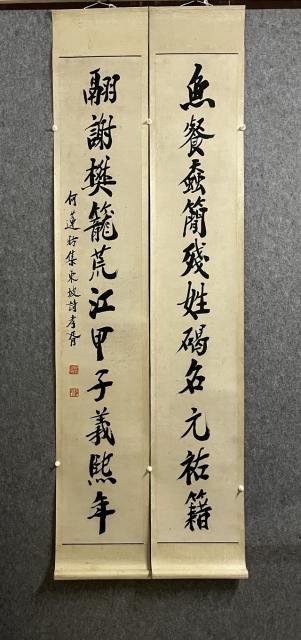 魚餐蠹簡殘姓碣名元祐籍
翮謝樊籠荒江甲子義熙年
何蓮舫集東坡詩孝胥